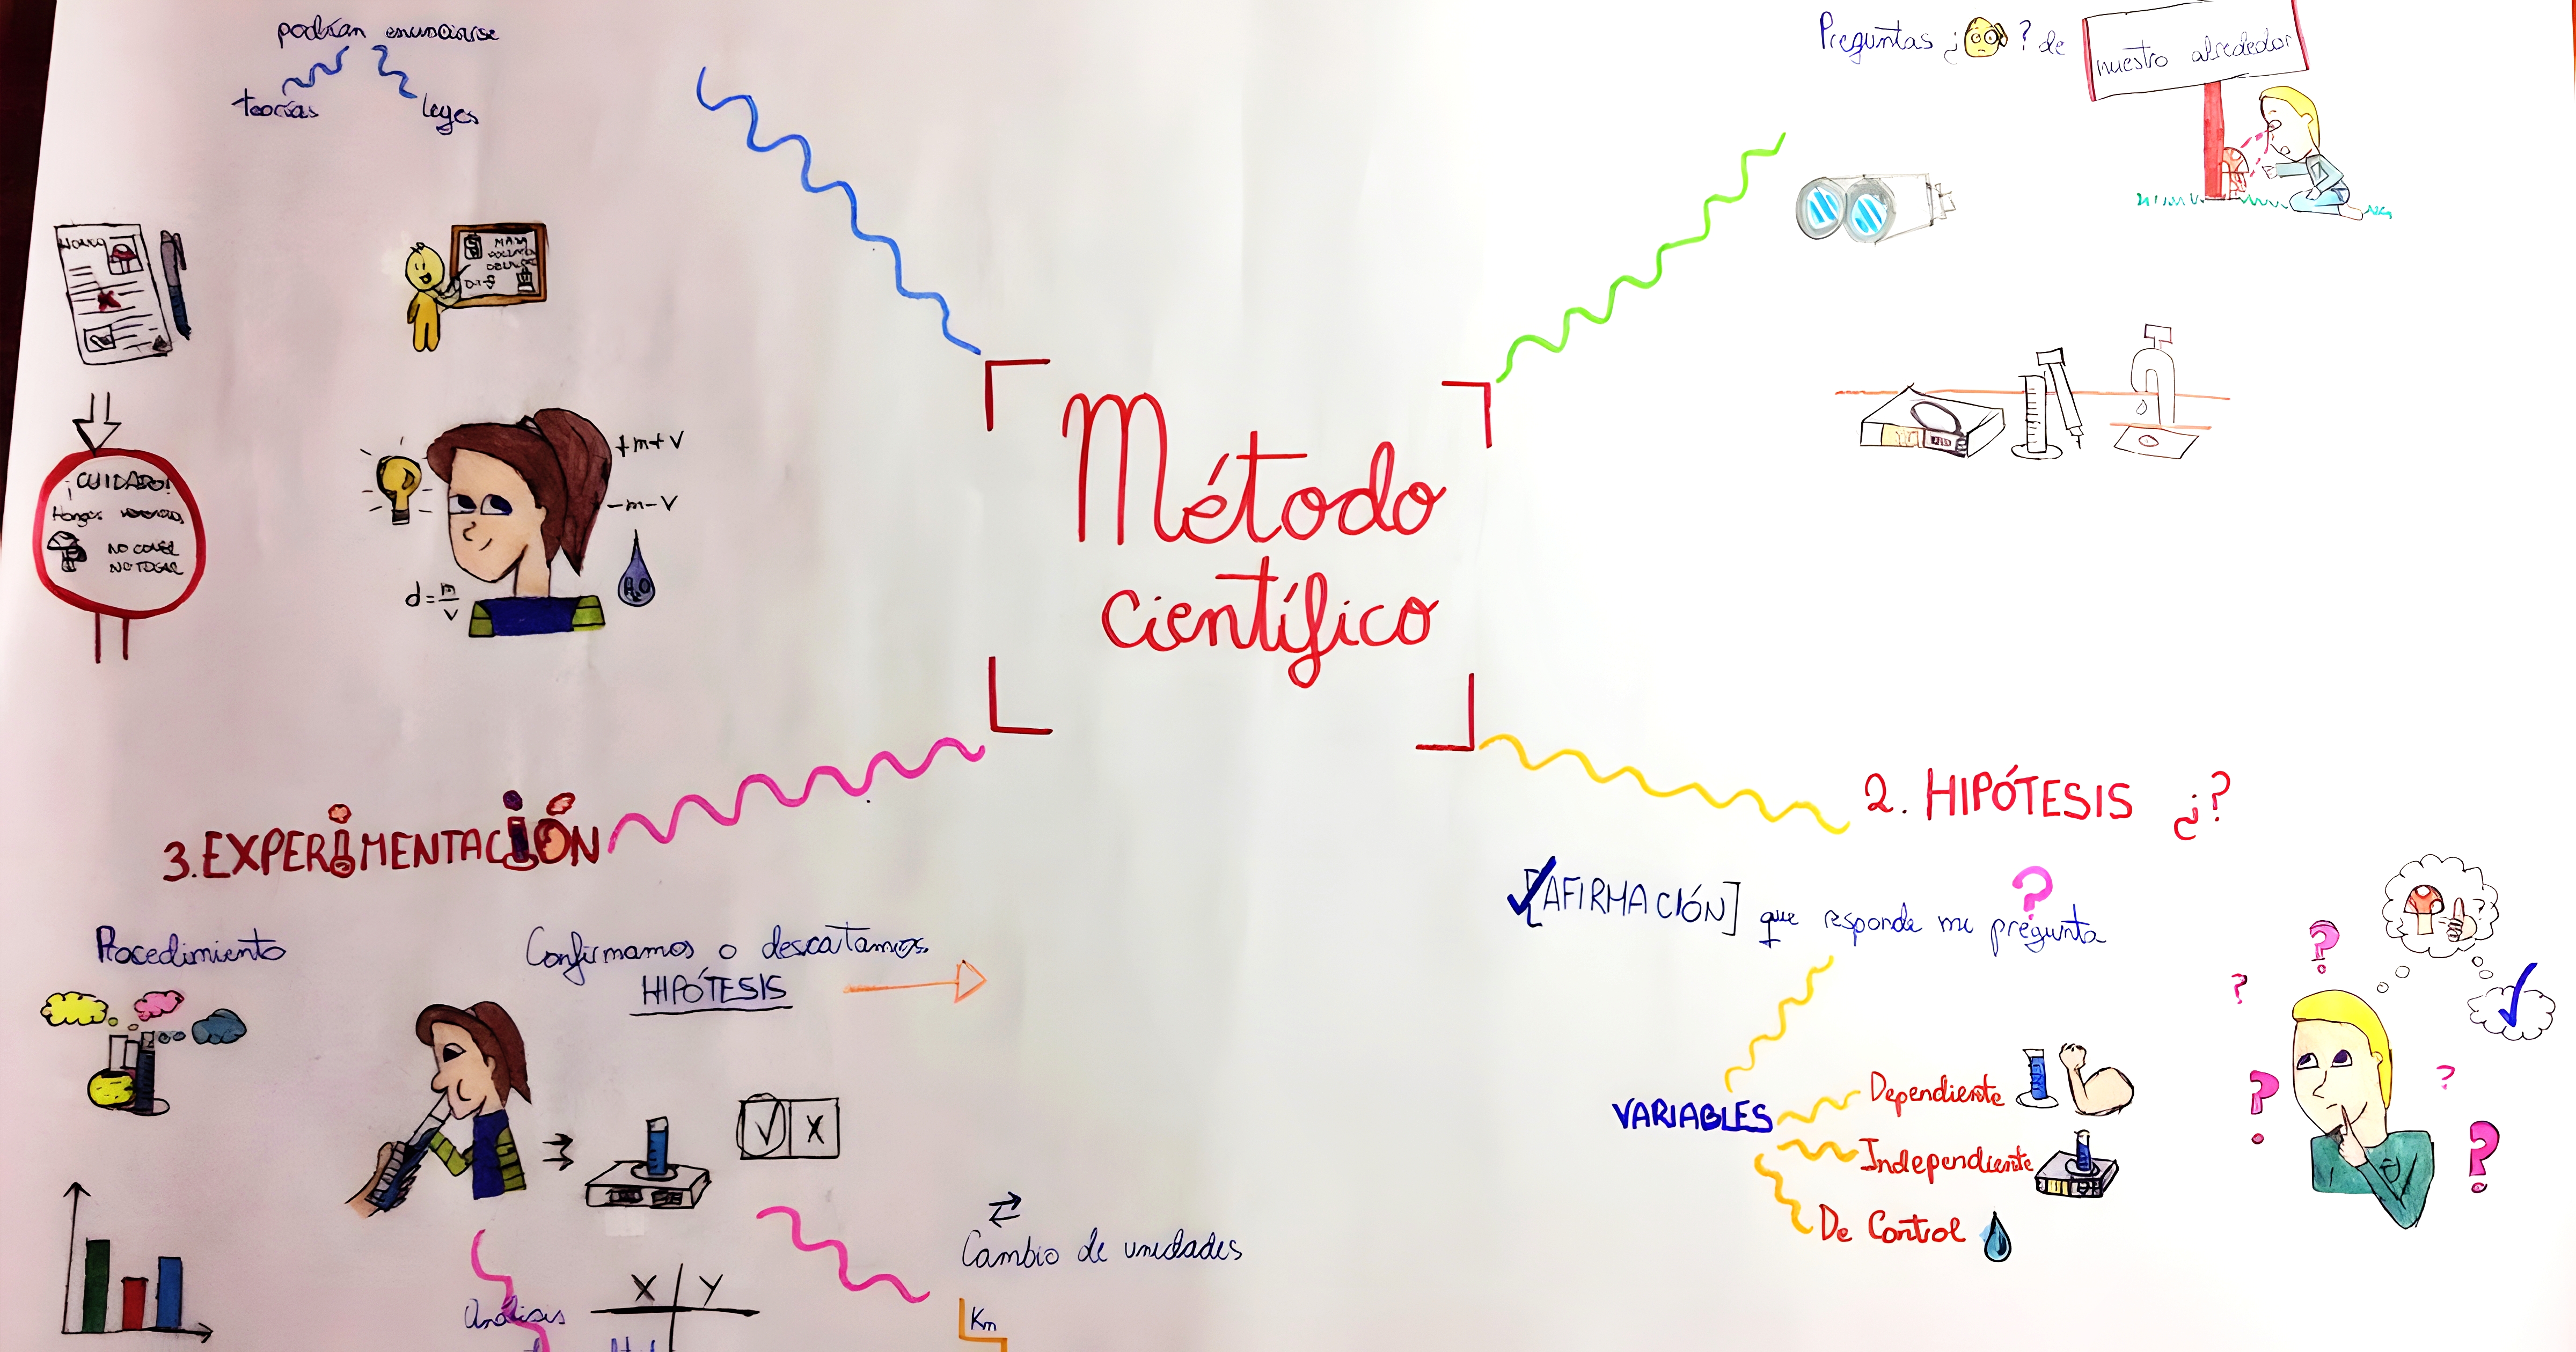 podrían enunciarse
teorías
leyes
Preguntas ¿ ? de
nuestro alrededor
MASA
+m+V
-m-V
d=m/v
H2O
¡CUIDADO!
Hongos
NO COMER
NO TOCAR
Método
científico
2. HIPÓTESIS ¿?
[AFIRMACIÓN] que responde mi pregunta
VARIABLES
Dependiente
Independiente
De Control
3. EXPERIMENTACIÓN
Procedimiento
Confirmamos o descartamos
HIPÓTESIS
X
Análisis
X Y
Cambio de unidades
Km